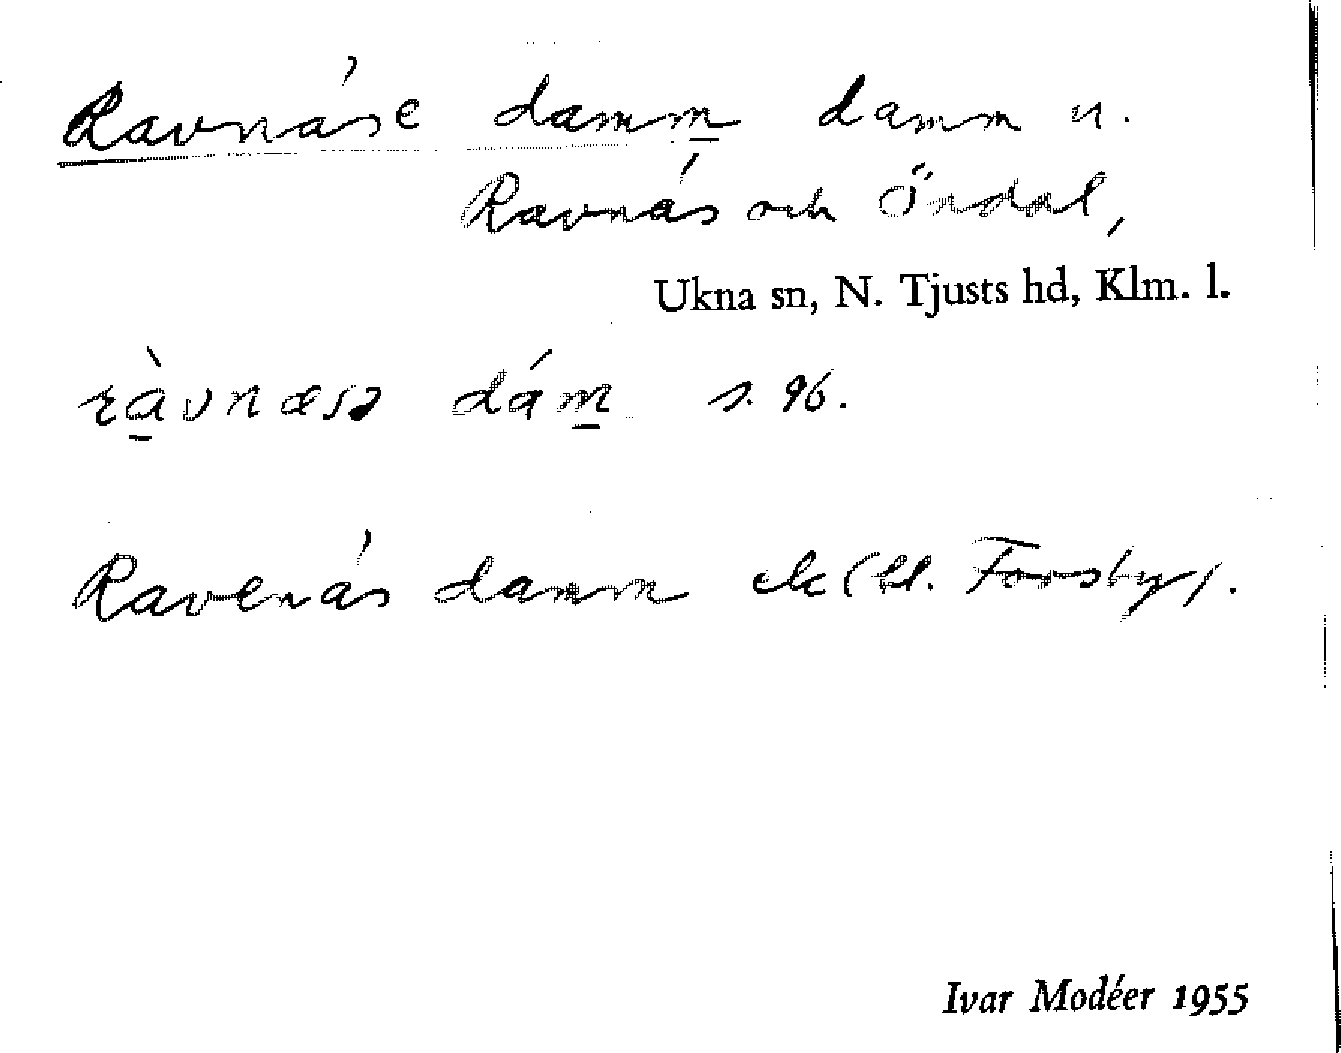 Ravnäse damm damm u.
Ravnäs och Öndal,
Ukna sn, N. Tjusts hd, Klm. l.
ràvnæsə dám s. 96.
Ravenäs damm ek (bl. Forsby).
Ivar Modéer 1955